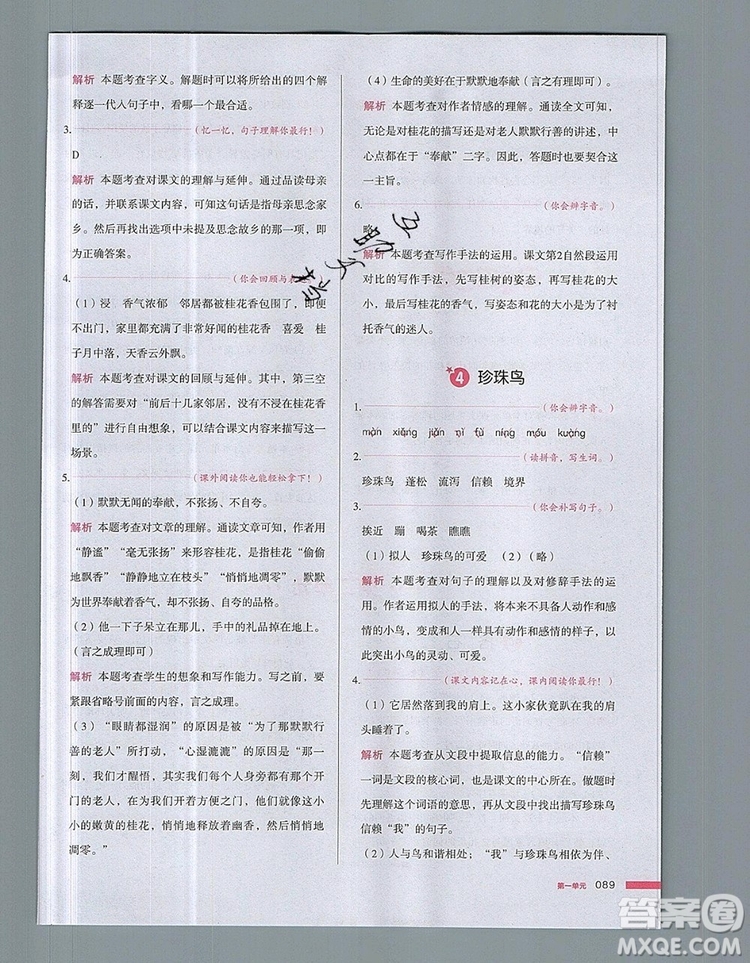 解析 本题考查字义。解题时可以将所给出的四个解
释逐一代入句子中，看哪一个最合适。
3.（忆一忆，句子理解你最行！）
D
解析 本题考查对课文的理解与延伸。通过品读母亲
的话，并联系课文内容，可知这句话是指母亲思念家
乡。然后再找出选项中未提及思念故乡的那一项，即
为正确答案。
4.（你会回顾与
（1）浸 香气浓郁 邻居都被桂花香包围了，即便
不出门，家里也充满了非常好闻的桂花香 喜爱 桂
子月中落，天香云外飘。
解析 本题考查对课文的回顾与延伸。其中，第三空
的解答需要对“前后十几家邻居，没有不浸在桂花香
里的”进行自由想象，可以结合课文内容描写这一
场景。
5.（课外阅读你也能轻松拿下！）
（1）默默无闻的奉献，不张扬、不自夸。
解析 本题考查对文章的理解。通读文章可知，作者用
“静谧”“毫无张扬”来形容桂花，是桂花“偷偷
地飘香”“静静地立在枝头”“悄悄地凋零”，默默
为世界奉献着香气，从不张扬、自夸的品格。
（2）他一下子呆立在那儿，手中的礼品掉在地上。
（言之成理即可）
解析 本题考查学生的想象和写作能力。写之前，要
紧跟省略号前面的内容，言之成理。
（3）“眼睛都湿润”的原因是被“为了那默默行
善的老人”所打动，“心湿漉漉”的原因是“那一
刻，我们才醒悟，其实每个人身旁都有一个不开
门的老人，在默默地奉献着一切，他们就像这小
小的嫩黄的桂花，悄悄地释放着幽香，悄悄地
凋零。”
（4）生命的美好在于默默地奉献（言之有理即可）
解析 本题考查对作者情感的理解。通读全文可知，
无论是对桂花的描写还是对老人默默行善的讲述，中
心点都在于“奉献”二字。因此，答题时也要契合这
一主旨。
6.（你会辨字音。）
略
解析 本题考查写作手法的运用。课文第2自然段运用
对比的写作手法，先写桂树的样子、姿态，后写桂花
的大小，最后写桂花的香气，写姿态和花的大小是为了衬
托香气的迷人。
4 珍珠鸟
1.（你会辨字音。）
màn xiāng jiān nì fù níng móu kuàng
2.（读拼音，写生词。）
珍珠鸟 蓬松 流泻 信赖 境界
3.（你会补写句子。）
挨近 蹦 喝茶 瞧瞧
（1）拟人 珍珠鸟的可爱 （2）（略）
解析 本题考查对句子的理解以及对修辞手法的运
用。作者运用拟人的手法，将没有人类动作和感
情的小鸟，变成与人一样具有动作和情感的样子，以
此突出小鸟的灵动、可爱。
4.（课文内容记在心，课内阅读你最行！）
（1）它居然落到我的肩上。这小家伙竟趴在我的肩
头睡着了。
解析 本题考查从文段中提取信息的能力。“信赖”
一词是文段的核心词，也是课文的中心所在。做题时
先理解这个词语的意思，再从文段中找出描写珍珠鸟
信赖“我”的句子。
（2）人与鸟和谐相处；“我”与珍珠鸟相依为伴、
第一单元 089
答案圈
MXQE.COM